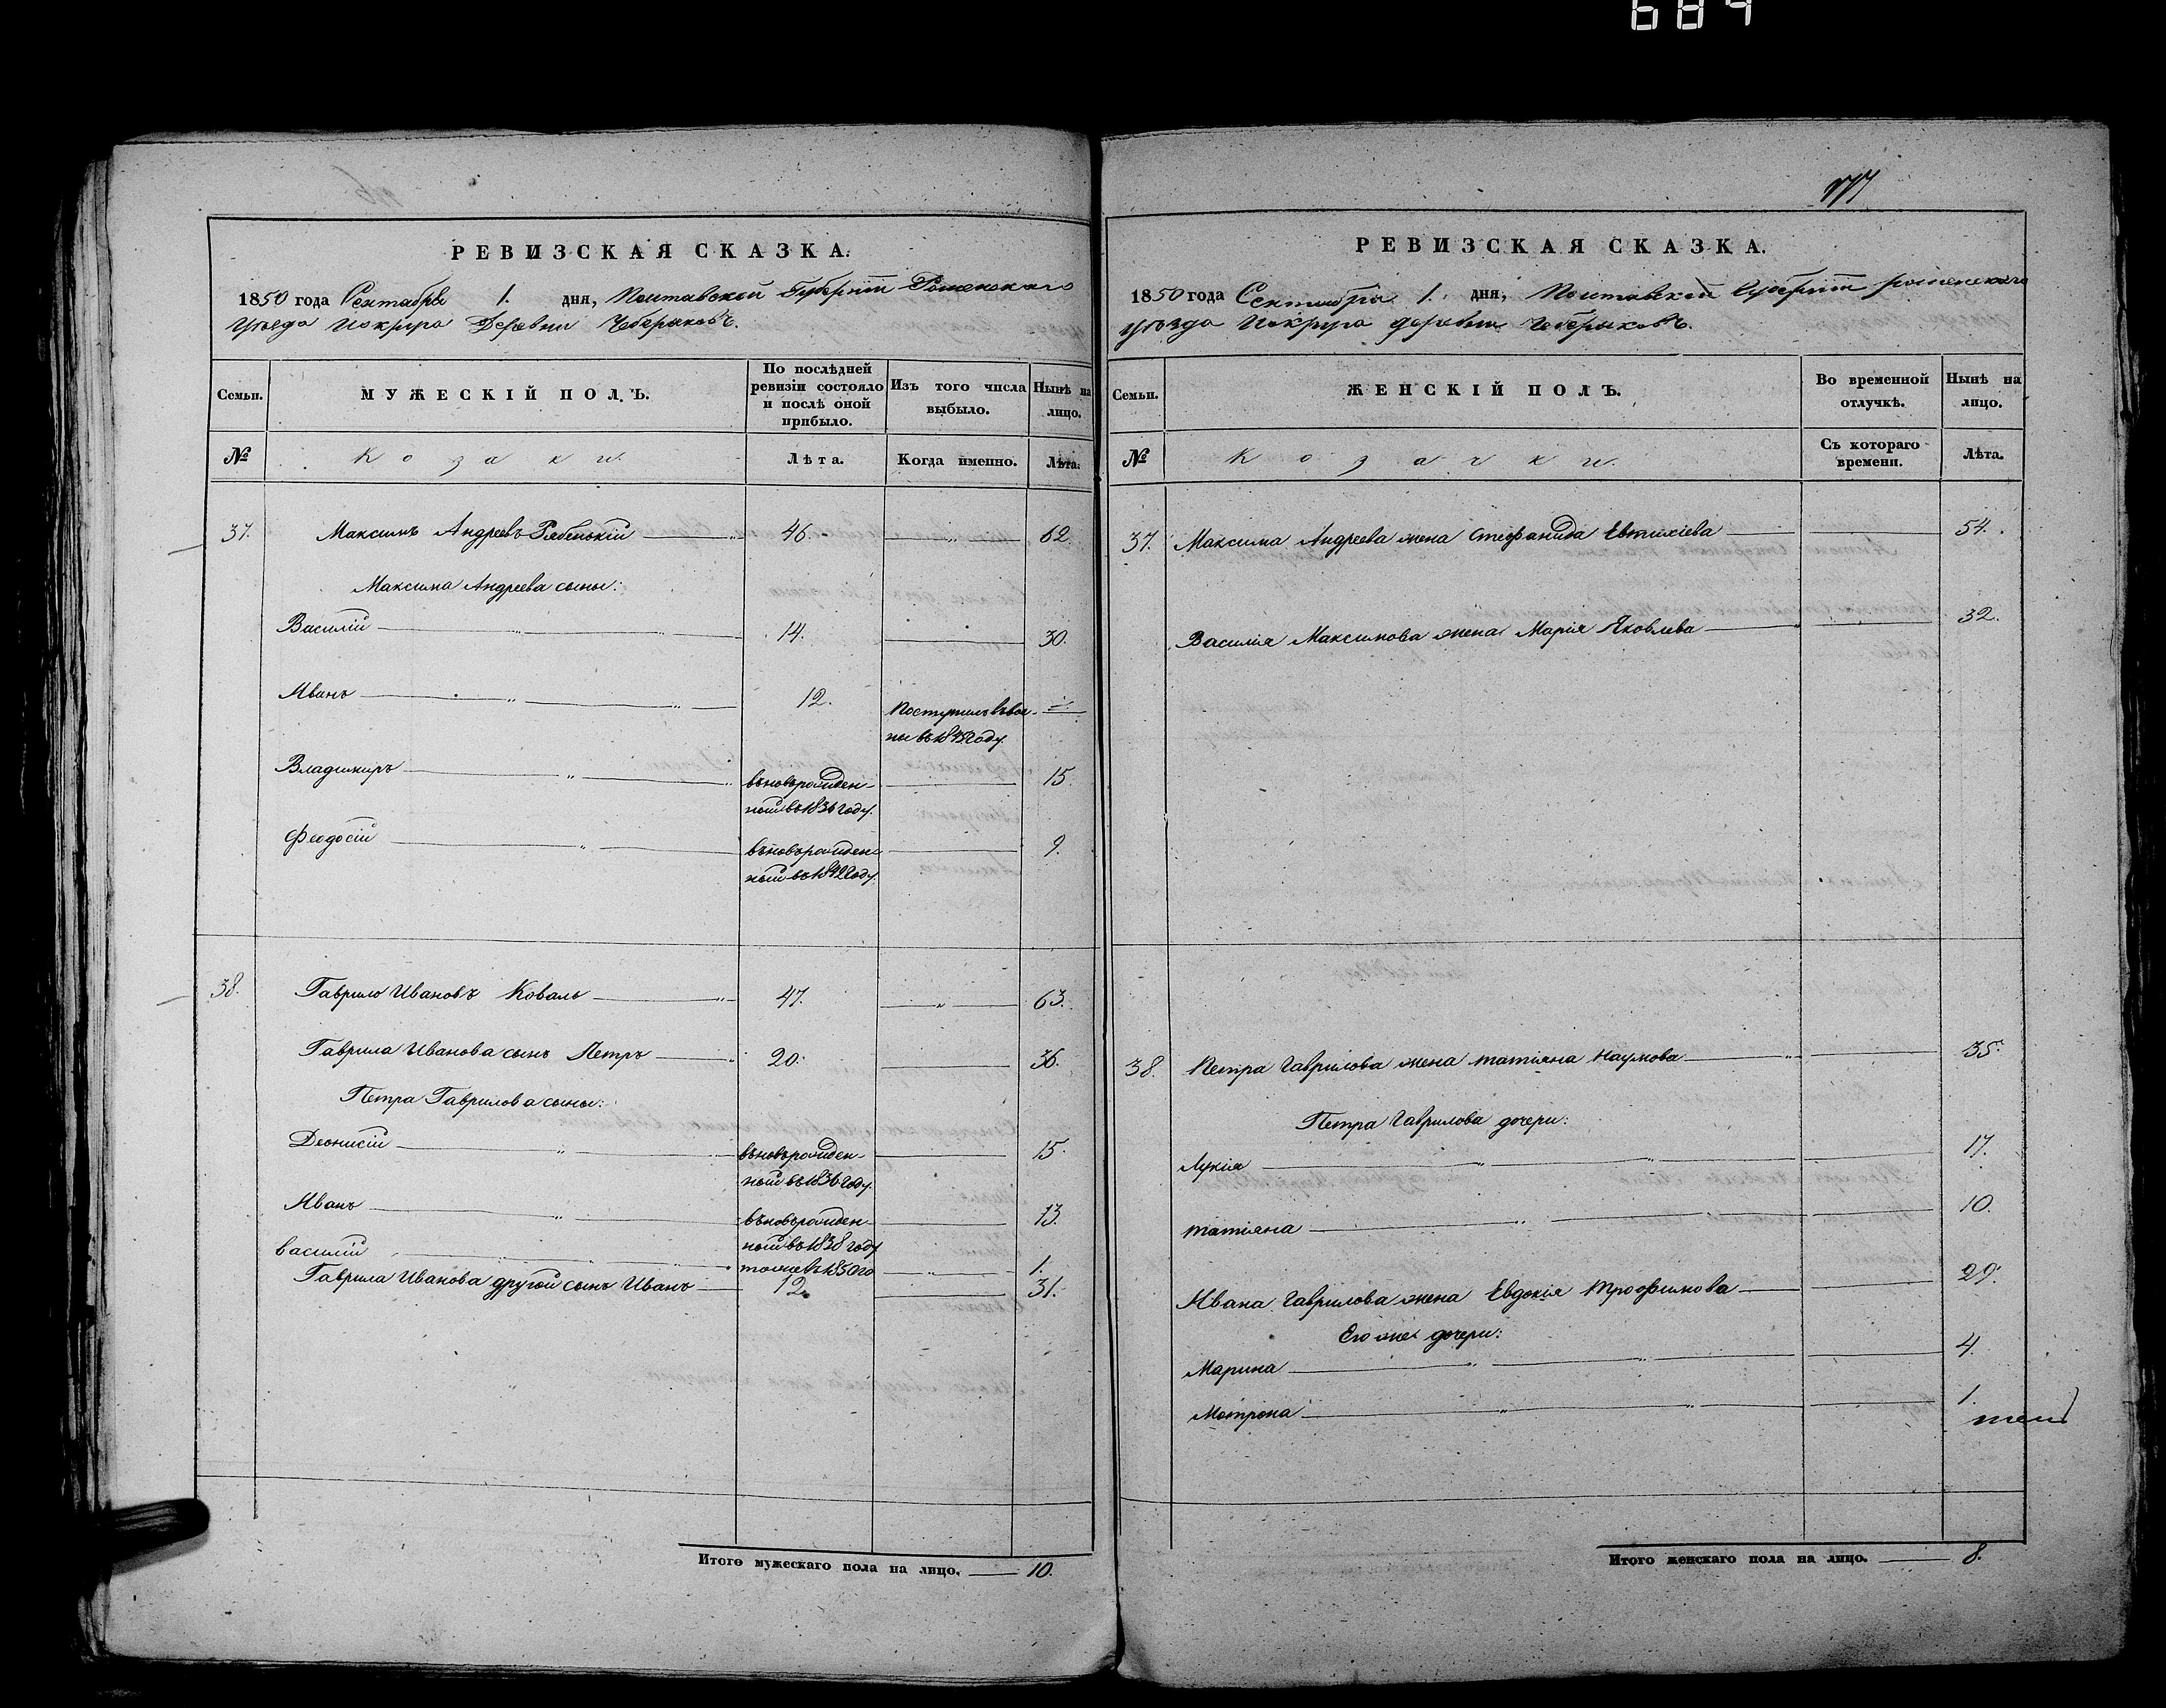 684
РЕВИЗСКАЯ СКАЗКА.
1850 года Сентября 1. дня, Полтавской Губерніи Роменскаго
уѣзда и округа Деревни Чеберяковъ.
Семьи.
МУЖЕСКІЙ ПОЛЪ.
По послѣдней ревизіи состояло и послѣ оной прибыло.
Изъ того числа выбыло.
Нынѣ на лицо.
№
Козаки.
Лѣта.
Когда именно.
Лѣта.
37. Максимъ Андреевъ Рябенькій 46. „ 62.
Максима Андреева сыны:
Василій „ „ 14. 30.
Иванъ „ „ 12. Поступилъ въ
въ году. „
Владимиръ „ „ вновьрожден- 15.
ный въ 1836 году.
Феодосій „ вновьрожден- 9.
ный въ 1842 году.
38. Гаврило Ивановъ Коваль „ 47. „ 63.
Гаврила Иванова сынъ Петръ „ 20. 36.
Петра Гаврилова сыны:
Деонисій „ вновьрожден- 15.
ный въ 1836 году.
Иванъ „ вновьрожден- 13.
ный въ 1838 году
василій тоже въ 1850 го „ 1.
Гаврила Иванова другой сынъ Иванъ 12. 31.
Итого мужескаго пола на лицо. 10.
177
РЕВИЗСКАЯ СКАЗКА.
1850 года Сентября 1. дня, Полтавской Губерніи роменскаго
уѣзда и округа деревни Чеберяковъ.
Семьи.
ЖЕНСКІЙ ПОЛЪ.
Во временной отлучкѣ.
Нынѣ на лицо.
№
Козачки.
Съ котораго времени.
Лѣта.
37. Максима Андреева жена Стефанида Евтихіева 54.
Василия Максимова жена Марія Яковлева „ 32.
38. Петра Гаврилова жена татіяна наумова „ 35.
Петра Гаврилова дочери:
Лукія „ „ 17.
татіяна „ „ 10.
Ивана Гаврилова жена Евдокія трофимова 29.
Его же дочери:
Марина „ „ 4.
Мотрона „ „ 1.
Итого женскаго пола на лицо. 8.